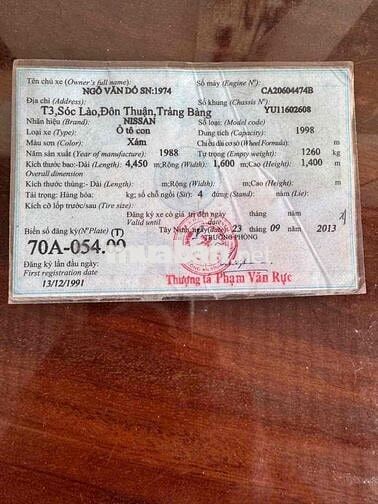 Tên chủ xe (Owner's full name): Số máy (Engine Nº):
NGÔ VĂN DÓ SN:1974 CA20604474B
Địa chỉ (Address): Số khung (Chassis Nº)
T3,Sóc Lào,Đôn Thuận,Trảng Bàng YU11602608
Nhãn hiệu (Brand): NISSAN Số loại: (Model code)
Loại xe (Type): Ô tô con Dung tích (Capacity): 1998
Màu sơn (Color): Xám Chiều dài cơ sở (Wheel Formula): m
Năm sản xuất (Year of manufacture): 1988 Tự trọng (Empty weight): 1260 kg
Kích thước bao-Dài (Length) 4,450 m;Rộng (Width): 1,600 m;Cao (Height): 1,400 m
Overall dimension
Kích thước thùng:-Dài (Length) m;Rộng (Width): m;Cao (Height): m
Tải trọng: Hàng hóa: kg; số chỗ ngồi (Sit): 4 đứng (Stand), nằm (Lie):
Kích cỡ lốp trước/sau (Tire size):
Đăng ký xe có giá trị đến ngày tháng năm
Valid until
Biển số đăng ký(NºPlate) (T) Tây Ninh, ngày(date): 23 tháng 09 năm 2013
70A-054. TRƯỞNG PHÒNG
Đăng ký lần đầu ngày:
First registration date
13/12/1991
Thượng tá Phạm Văn Rực